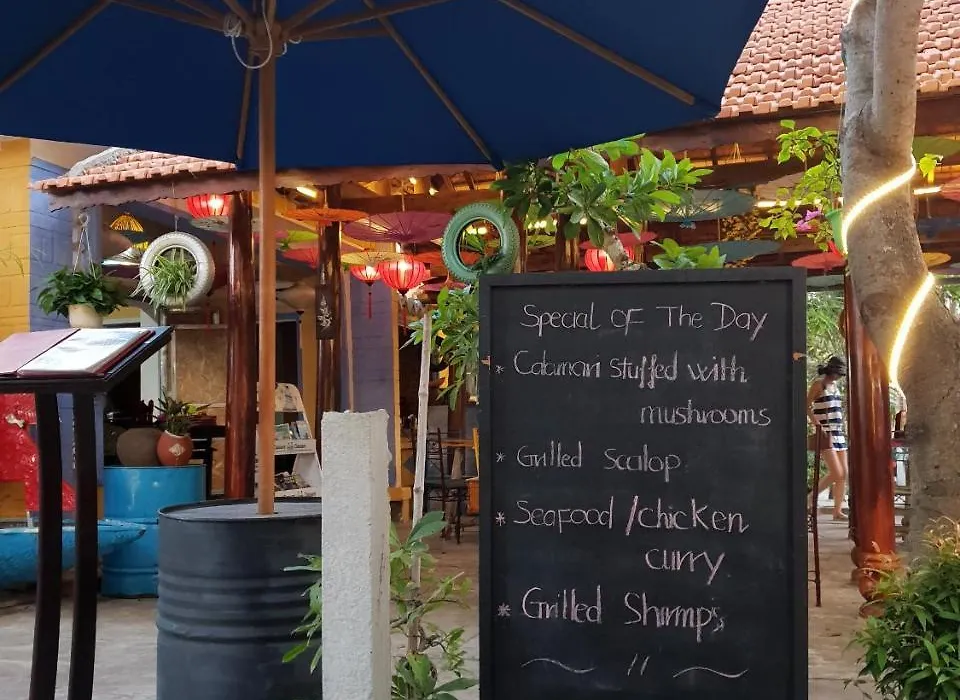 Special OF The Day
* Calamari stuffed with
mushrooms
* Grilled Scalop
* Seafood / chicken
curry
* Grilled Shrimps